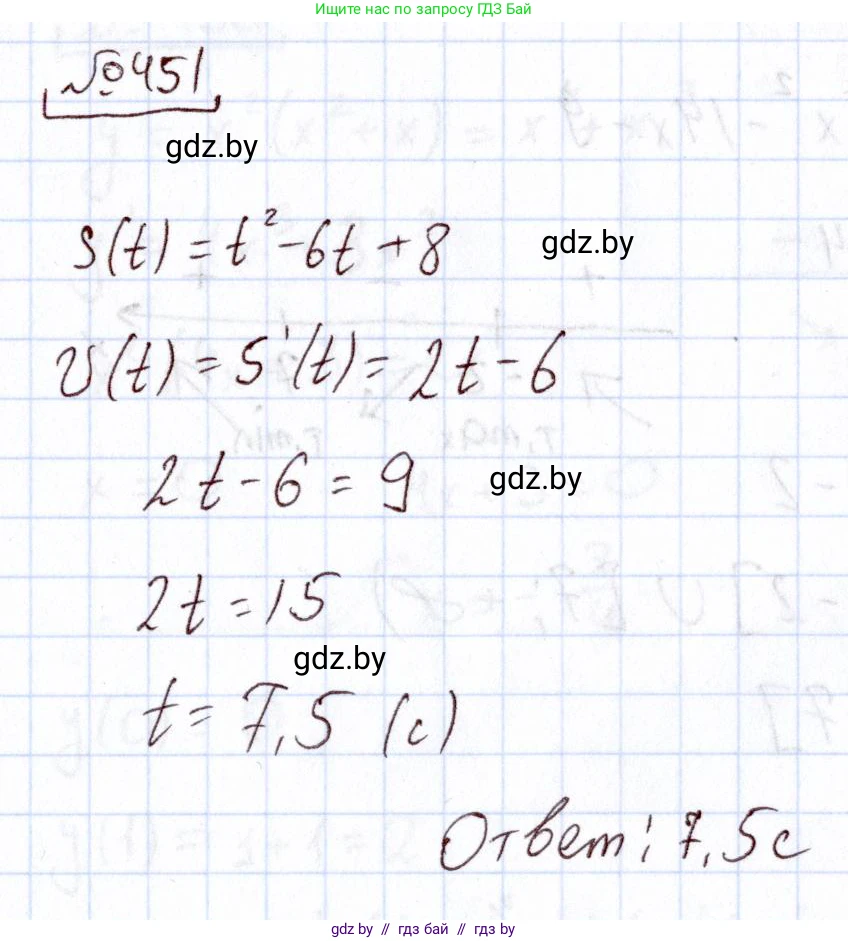 Ищите нас по запросу ГДЗ Бай
№451
gdz.by
S(t) = t² - 6t + 8
gdz.by
v(t) = S'(t) = 2t - 6
2t - 6 = 9
gdz.by
2t = 15
gdz.by
t = 7,5 (с)
Ответ: 7,5с
gdz.by // гдз бай // гдз by